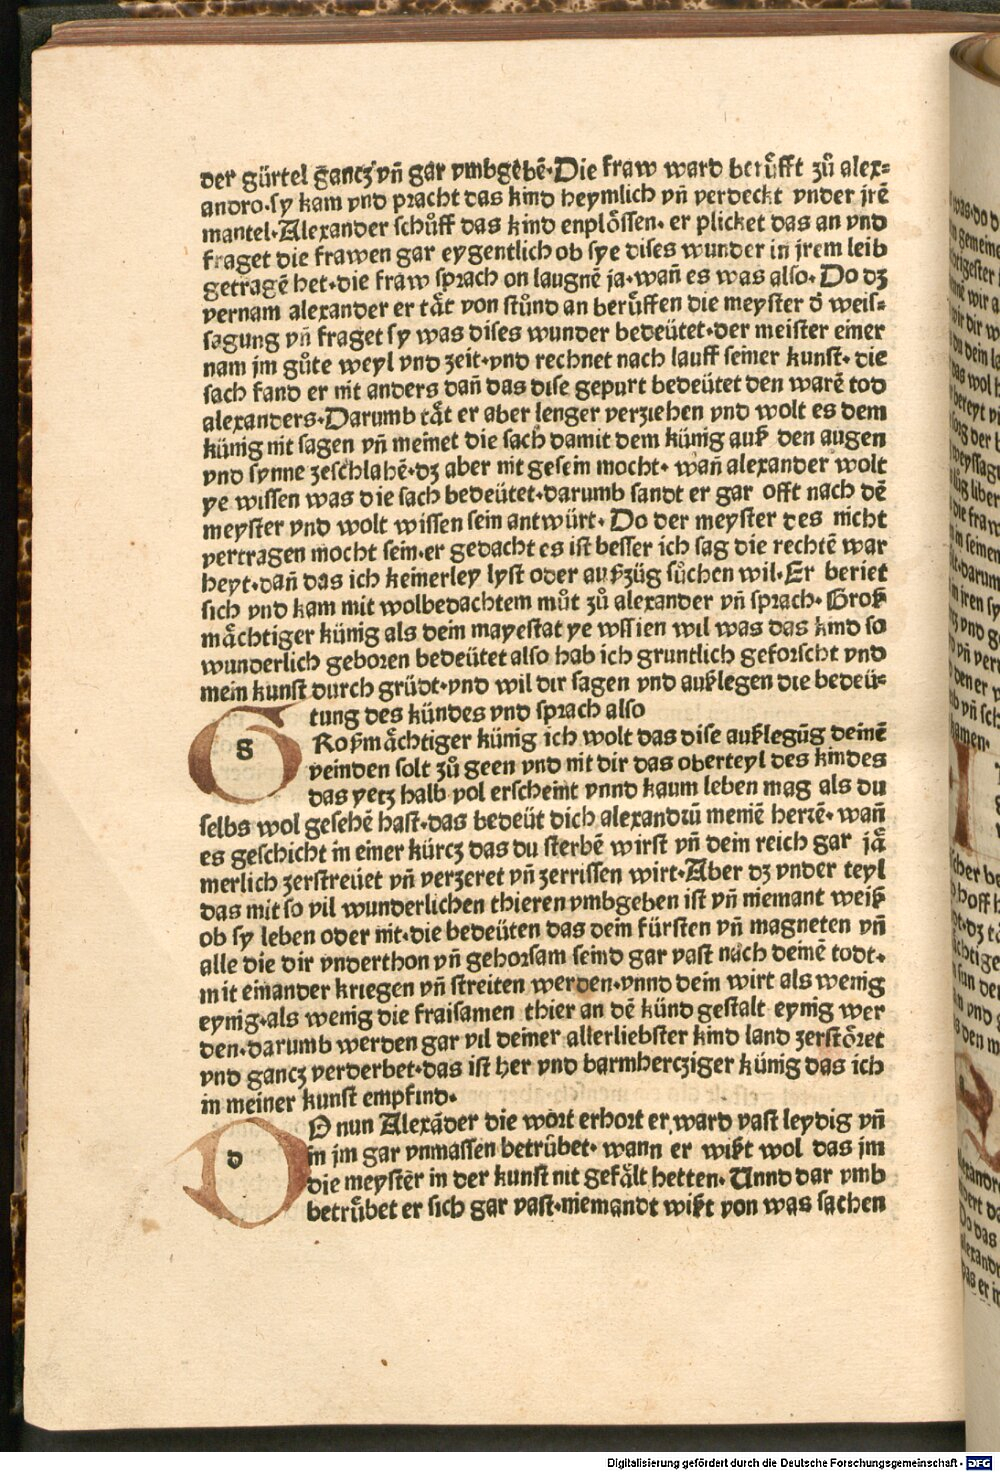 der gürtel gancz vñ gar vmbgebẽ·Die fraw ward berůfft zů alex⸗
andro·sy kam vnd pracht das kind heymlich vñ verdeckt vnder jrẽ
mantel·Alexander schůff das kind enplössen· er plicket das an vnd
fraget die frawen gar eygentlich ob sye dises wunder in jrem leib
getragẽ het·die fraw sprach on laugnẽ ja·wañ es was also· Do dz
vernam alexander er tät von stůnd an berůffen die meyster d̄ weis⸗
sagung vñ fraget sy was dises wunder bedeütet·der meister einer
nam jm gůte weyl vnd zeit·vnd rechnet nach lauff seiner kunst· die
sach fand er nit anders dañ das dise gepurt bedeütet den warẽ tod
alexanders·Darumb tät er aber lenger verziehen vnd wolt es dem
künig nit sagen vñ meinet die sach damit dem künig auß den augen
vnd synne zeschlahẽ·dz aber nit gesein mocht· wañ alexander wolt
ye wissen was die sach bedeütet·darumb sandt er gar offt nach dẽ
meyster vnd wolt wissen sein antwürt· Do der meyster des nicht
vertragen mocht sein·er gedacht es ist besser ich sag die rechtẽ war
heyt·dañ das ich keinerley lyst oder außzüg sůchen wil·Er beriet
sich vnd kam mit wolbedachtem můt zů alexander vñ sprach· Groß
mächtiger künig als dein mayestat ye wssien wil was das kind so
wunderlich geboren bedeütet also hab ich gruntlich geforscht vnd
mein kunst durch grüdt·vnd wil dir sagen vnd außlegen die bedeü⸗
tung des kündes vnd sprach also
g Roßmächtiger künig ich wolt das dise außlegũg deinẽ
veinden solt zů geen vnd nit dir das oberteyl des kindes
das yetz halb vol erscheint vnnd kaum leben mag als du
selbs wol gesehẽ hast·das bedeüt dich alexandrũ meinẽ herrẽ· wañ
es geschicht in einer kürcz das du sterbẽ wirst vñ dein reich gar jä
merlich zerstreüet vñ verzeret vñ zerrissen wirt·Aber dz vnder teyl
das mit so vil wunderlichen thieren vmbgeben ist vñ niemant weiß
ob sy leben oder nit·die bedeüten das dein fürsten vñ magneten vñ
alle die dir vnderthon vñ gehorsam seind gar vast nach deinẽ todt·
mit einander kriegen vñ streiten werden·vnnd dein wirt als wenig
eynig·als wenig die fraisamen thier an dẽ künd gestalt eynig wer
den·darumb werden gar vil deiner allerliebster kind land zerstöret
vnd gancz verderbet·das ist her vnd barmhercziger künig das ich
in meiner kunst empfind·
d O nun Alexãder die wort erhort er ward vast leydig vñ
in jm gar vnmassen betrůbet· wann er wißt wol das jm
die meyster in der kunst nit gefält hetten· Unnd dar vmb
betrůbet er sich gar vast·niemandt wißt von was sachen
Digitalisierung gefördert durch die Deutsche Forschungsgemeinschaft - DFG